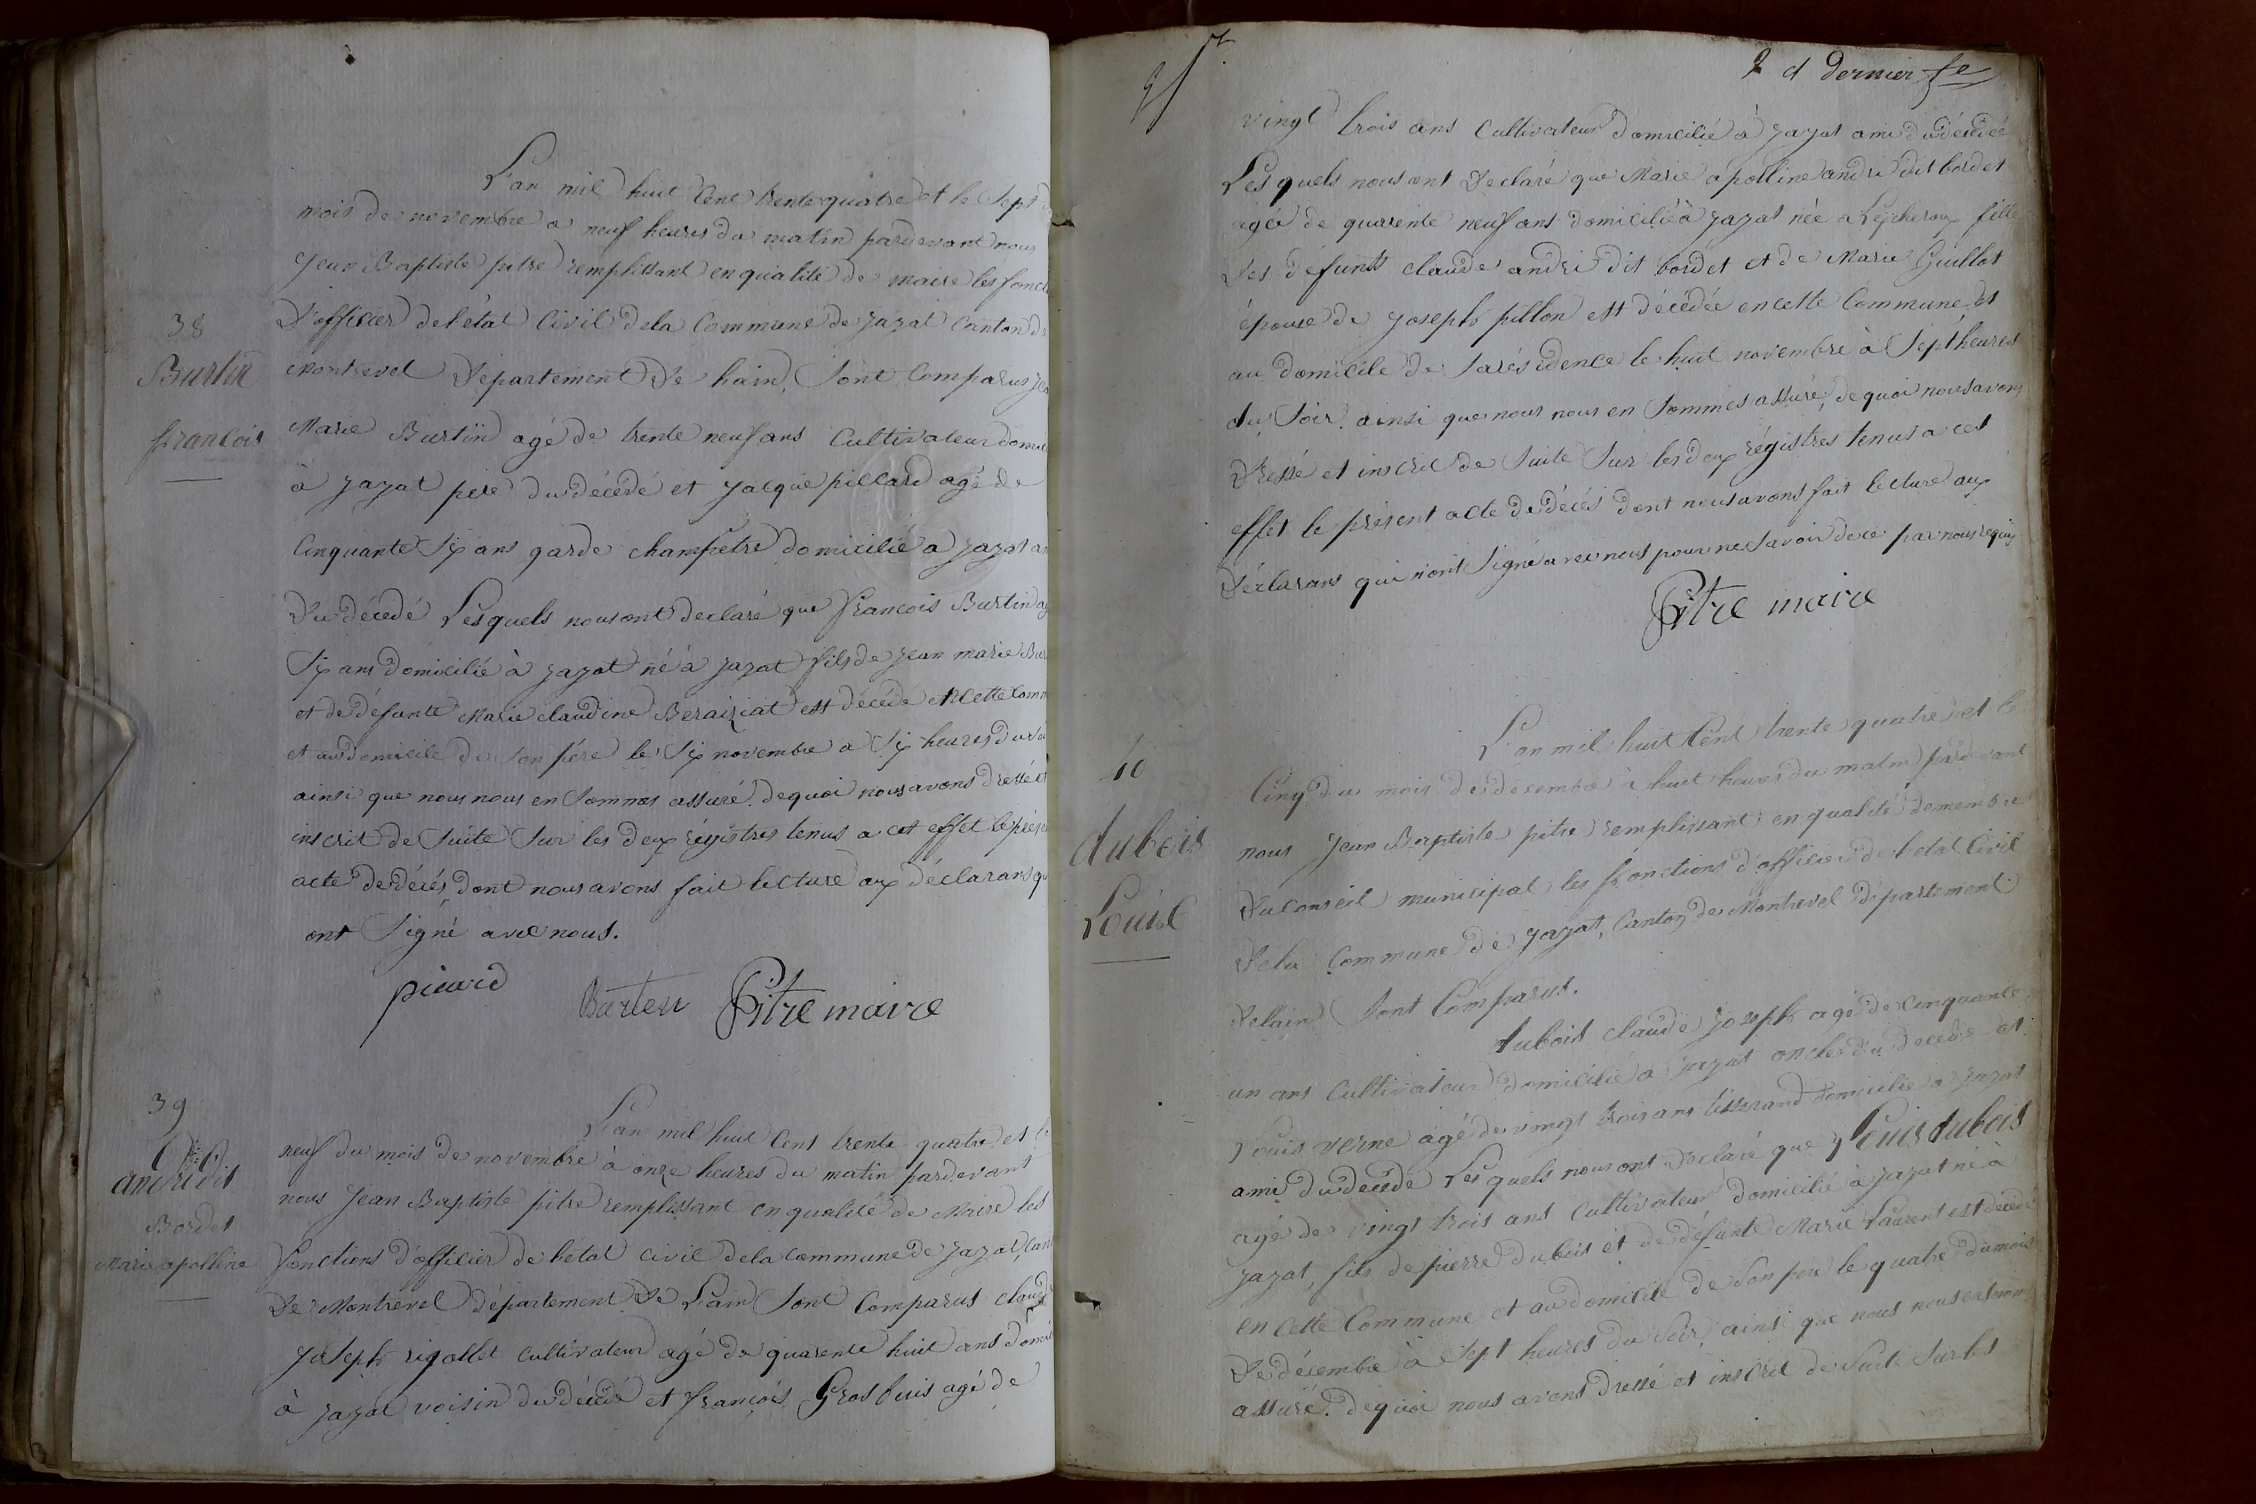 38
Burtin
françois
L'an mil huit Cent trente quatre et le Sept
mois de novembre a neuf heures du matin pardevant nous
Jean Baptiste pitre remplissant en qualité de maire les fonct
D'officier de l'état Civil dela Commune de jayat Canton de
Montrevel Département De hain, Sont Comparus
Marie Burtin agé de trente neuf ans Cultivateur domicil
à jayat pere du décédé et jacque piccard agé de
Cinquante Six ans garde champetre domicilié a jayat
Du décedé Lesquels nous ont declaré que françois Burtin
Six ans domicilié à jayat né à jayat fils de jean marie Bur
et de défunte Marie claudine Beraiziat est décédé en cette Comm
et au domicile de Son pére le Six novembre a Six heures du
ainsi que nous nous en Sommes assuré. dequoi nous avons dressé et
inscrit de Suite Sur les deux régistres tenus a cet effet le prés
acte de décès, dont nous avons fait lecture aux déclarans qu
ont Signé avec nous.
picard Burten Pitre maire
39
andri dit
Bordet
Marie apolline
L'an mil huit Cent trente quatre et le
neuf du mois de novembre à onze heures du matin pardevant
nous Jean Baptiste pitre remplissant en qualité de Maire les
fonctions d'officier de l'état Civil dela Commune de jayat, Can
De Montrevel département De L'ain Sont Comparus claude
joseph rigollet Cultivateur agé de quarente huit ans domi
à jayat voisin du décédé et françois Grosbuis agé de
2 et dernier fe
vingt trois ans Cultivateur domicilié à jayat ami du décédé
Lesquels nous ont Declaré que Marie apolline andri dit bordet
agée de quarente neuf ans domicilié à jayat née a Lescheroux fille
Des défunts claude andri dit bordet et de Marie Guillot
épouse de joseph pillon est décédée en cette Commune, et
au domicile de Sa résidence le huit novembre à Sept heures
du Soir. ainsi que nous nous en Sommes assuré, de quoi nous avons
Dressé et inscrit de Suite Sur les deux régistres tenus a cet
effet le présent acte de décès dont nous avons fait lecture aux
Déclarans qui n'ont Signé avec nous pour ne Savoir de ce par nous requis
Pitre maire
40
dubois
Louise
L'an mil huit Cent trente quatre et le
Cinq du mois de decembre à huit heures du matin pardevant
nous Jean Baptiste pitre remplissant en qualité de membre
Du Conseil municipal les fonctions d'officier de l'etat Civil
Dela Commune de jayat, Canton de Montrevel département
De lain Sont Comparus.
dubois claude joseph agé de Cinquante
un ans Cultivateur domicilié a jayat oncle du decédé et
Louis verne agé de vingt trois ans tisserand domicilié a jayat
ami du decédé Lesquels nous ont Declaré que Louis dubois
agé de vingt trois ans Cultivateur domicilié à jayat né à
jayat, fils de pierre dubois et de défunte Marie Laurent est décédé
en cette Commune et au domicile de Son pere le quatre du mois
De décembre à Sept heures du Soir, ainsi que nous nous en Somm
assuré. dequoi nous avons dressé et inscrit de Suite Sur les